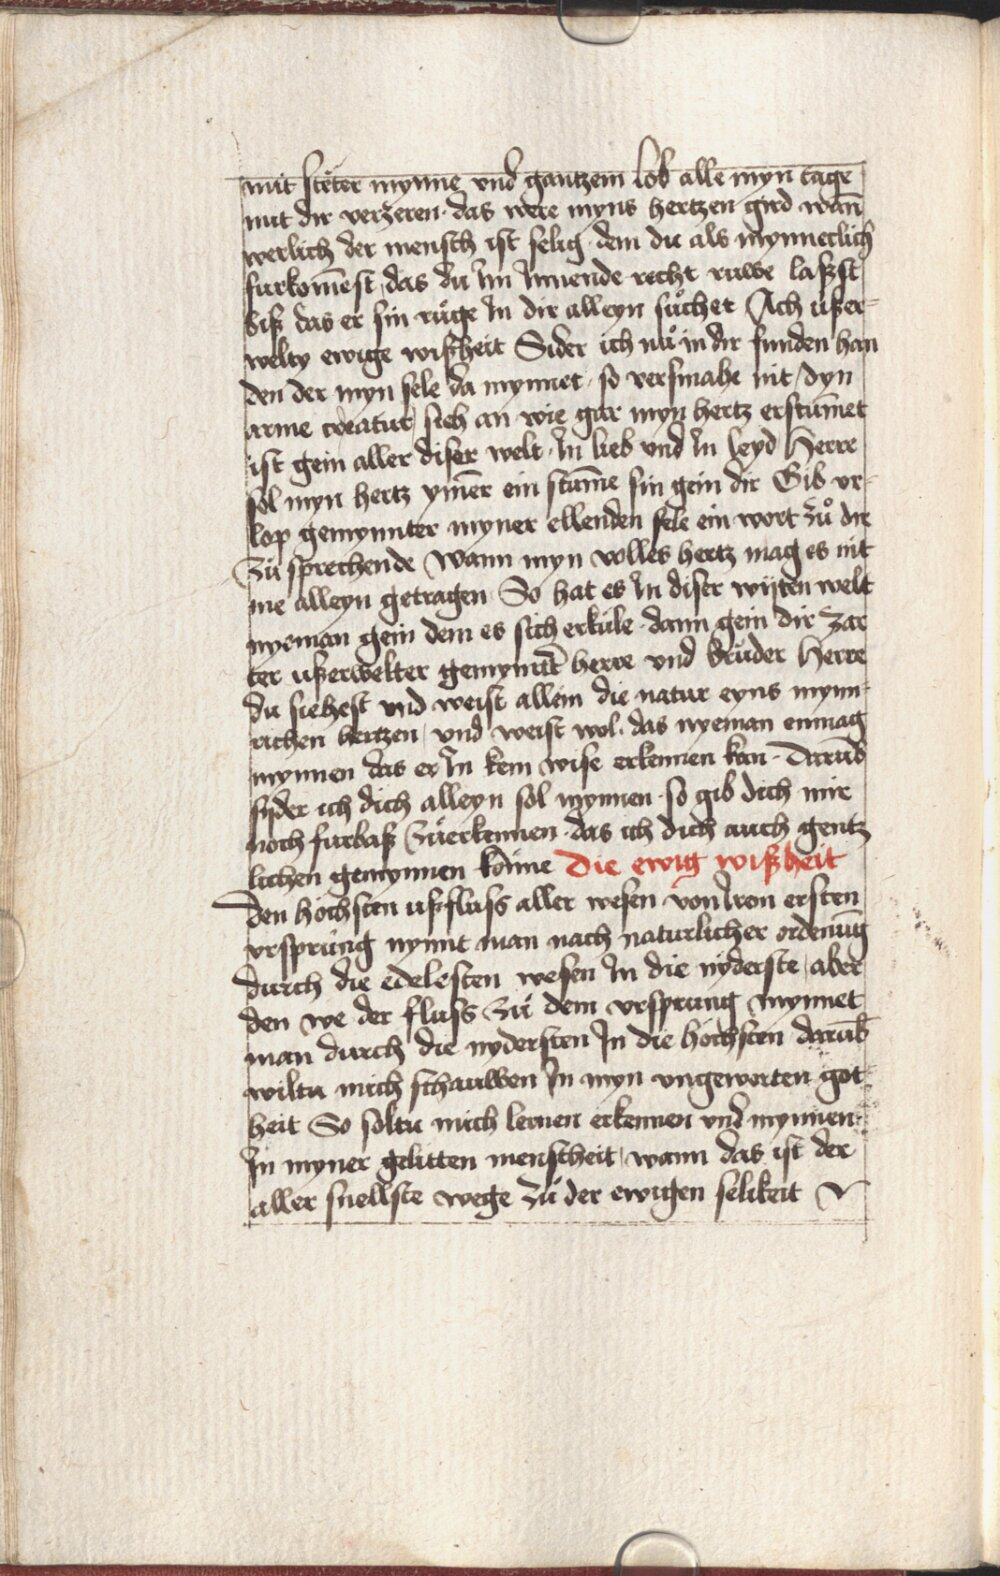 mit steter mynne vnd gantzem lob alle myn tage
mit dir verzeren · das were myns hertzen gird wan̄
werlich der mensch ist selig · dem du als mynnerlich
furkom̄est · das du Im Nynende recht ruwe laßst
biß das er sin ruͦge In dir alleyn suͦchet Ach ußer-
welty ewige wißheit Sider ich nuͦ in dir funden han
den der myn sele da mynnet · so versmahe nit dyn
arme creatur sieh an wie gar myn hertz erstum̄et
ist gein aller diser welt · In lieb vnd In leyd Herre
sol myn hertz ym̄er ein stum̄e sin gein dir Gib vr-
lop gemynnter myner ellenden sele ein wort zuͦ dir
zuͦ sprechende Wann myn volles hertz mag es nit
me alleyn getragen So hat es In diser wijten welt
nyeman gein dem es sich erkuͤle · dann gein dir zar
ter ußerwelter gemynnter herre vnd bruͦder Herre
du siehest vnd weist allein die natur eyns mynn-
richen hertzen vnd weist wol · das nyeman enmag
mynnen das er In kein wise erkennen kan · Darub̄
syder ich dich alleyn sol mynnen · so gib dich mir
noch furbaß Zuͦerkennen · das ich dich auch gentz
lichen gemynnen kon̄ne Die ewig wißheit
Den hochsten ußfluss aller wesen von Irem ersten
vrsprung nymt man nach naturlicher ordenu̅g
durch die edelesten wesen In die nyderste aber
den we der fluss zuͦ dem vrsprung mynnet
man durch die nydersten In die hochsten darub̄
wiltu mich schauwen In myn vngeworten got-
heit So soltu mich lernen erkennen vnd mynnen
In myner gelitten menscheit wann das ist der
aller snellste wege zuͦ der ewigen selikeit